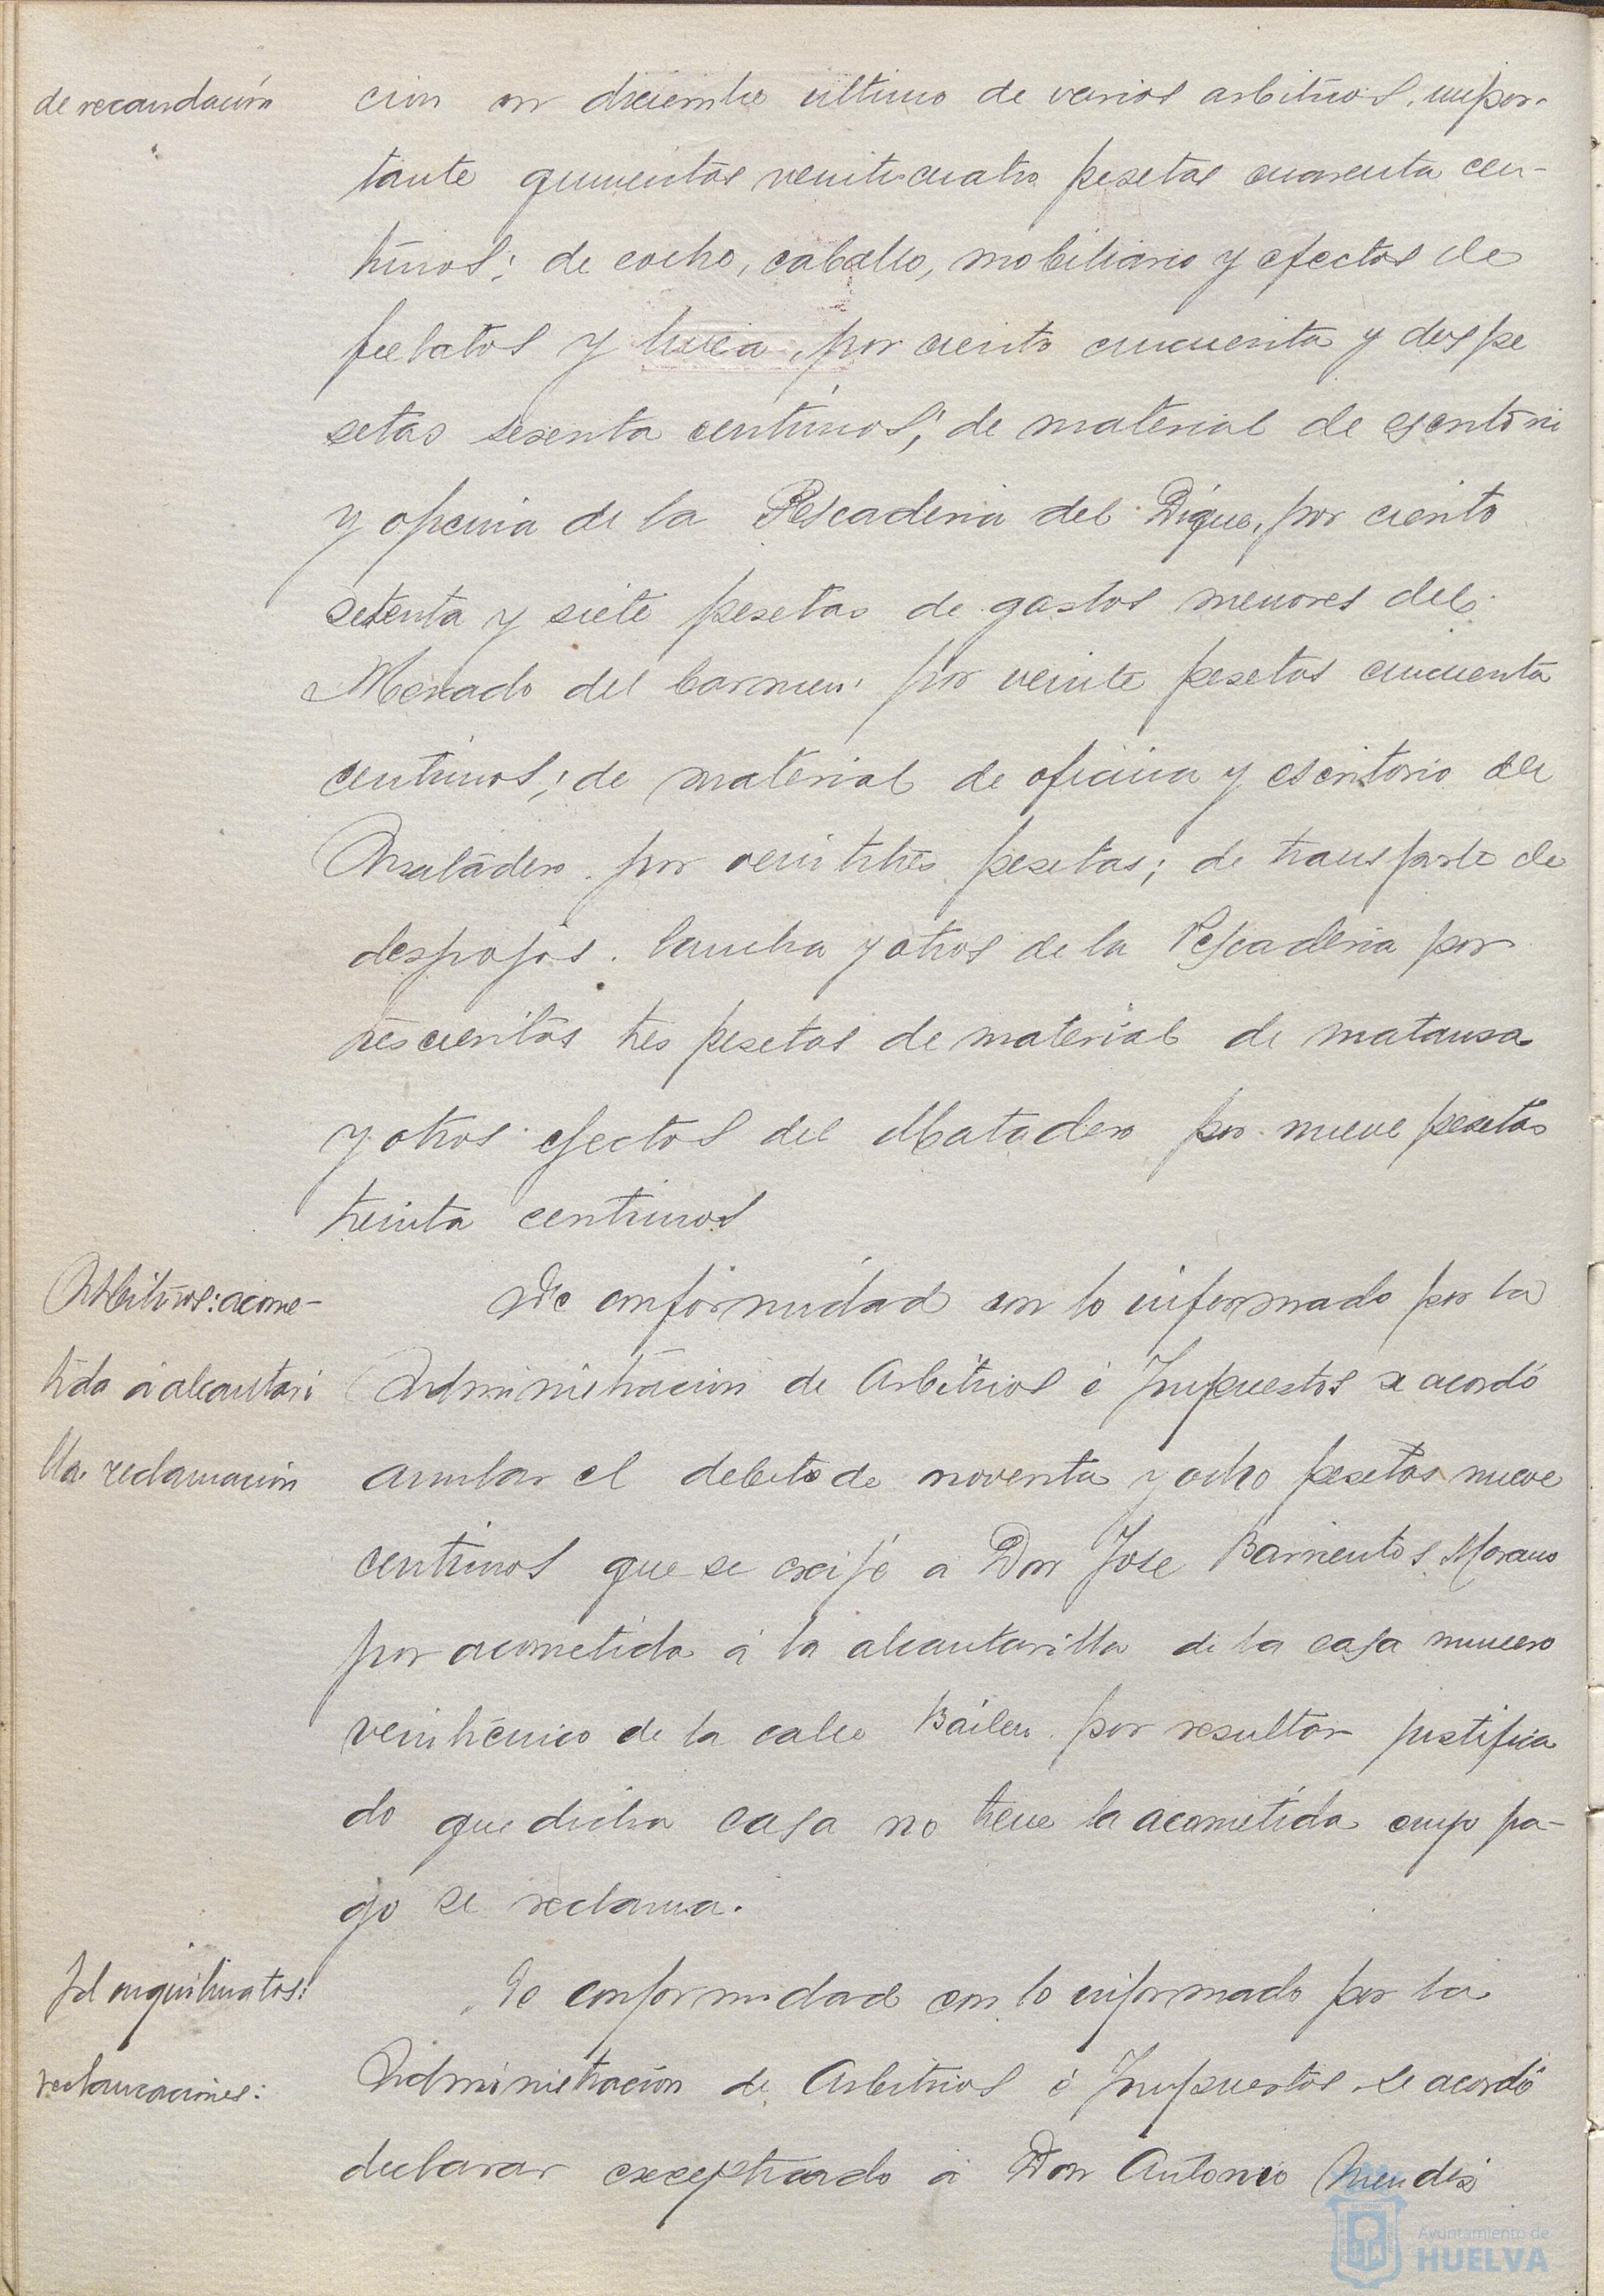 de recaudación
cion en diciembre ultimo de varios arbitrios, impor-
tante quinientas veinticuatro pesetas cuarenta cen-
timos; de coche, caballo, mobiliario y efectos de
fielatos y linea, por ciento cincuenta y dos pe
setas sesenta centimos; de material de escritori
y oficina de la Pescaderia del Dique, por ciento
setenta y siete pesetas de gastos menores del
Mercado del Carmen por veinte pesetas cincuenta
centimos; de material de oficina y escritorio del
Matadero por veintitres pesetas; de transporte de
despojos, lancha y otros de la Pescaderia por
trescientas tres pesetas de material de matansa
y otros efectos del Matadero por nueve pesetas
treinta centimos
Arbitrios: acome-
tida á alcantari
lla. reclamación
De conformidad con lo informado por la
Administracion de Arbitrios é Impuestos se acordó
anular el debito de noventa y ocho pesetas nueve
centimos que se exije a Don Jose Barrientos Moreno
por acometida á la alcantarilla de la casa numero
veinticinco de la calle Bailen por resultar justifica
do que dicha casa no tiene la acometida cuyo pa-
go se reclama.
Id inquilinatos:
reclamaciones:
De conformidad con lo informado por la
Administración de Arbitrios é Impuestos se acordó
declarar exceptuado á Don Antonio Mendez
Ayuntamiento de
HUELVA